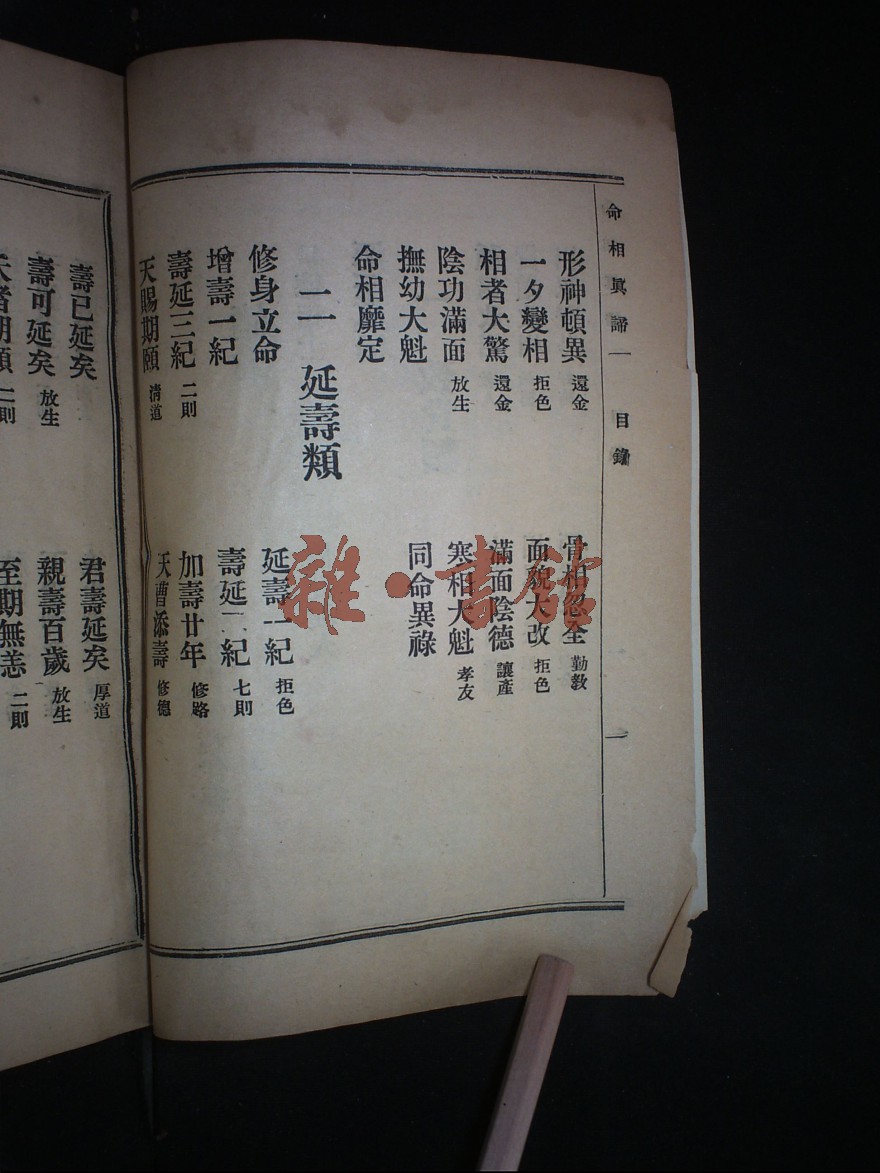 命相眞諦 目錄 一
形神頓異 還金
骨相忽全 勤教
一夕變相 拒色
面貌大改 拒色
相者大驚 還金
滿面陰德 讓產
陰功滿面 放生
寒相大魁 孝友
撫幼大魁
同命異祿
命相靡定
二 延壽類
修身立命
延壽一紀 拒色
增壽一紀
壽延一紀 七則
壽延三紀 二則
加壽廿年 修路
天賜期頤 清道
天曹添壽 修德
壽已延矣
君壽延矣 厚道
壽可延矣 放生
親壽百歲 放生
夭者期頤 二則
至期無恙 二則
雜·書館